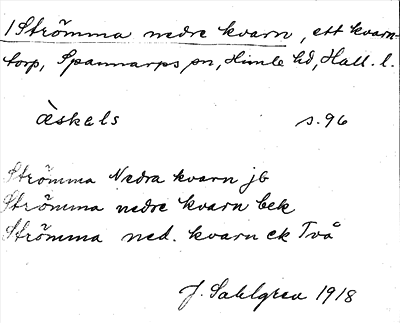 /Strömma nedre kvarn, ett kvarn-
torp, Spannarps sn, Himle hd, Hall. l.
Æskels s. 96
Strömma Nedra kvarn jb
Strömma nedre kvarn bek
Strömma ned. kvarn ek Två
J. Sahlgren 1918